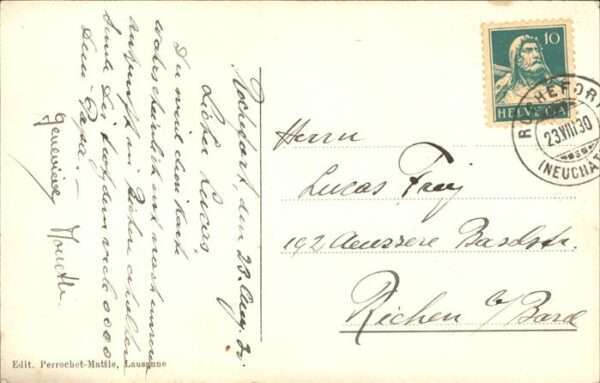 Rochefort, den 23. Aug. 30
Lieber Lucas
Du wirst dein Karte
wahrscheinlich erst nach unserer
Ankunft in Riehen erhalten
Dein Papa.—
Geneviève
Herrn
Lucas Frey
192 Aeussere Baselstr.
Riehen b/Basel
10
HELVETIA
ROCHEFORT
23.VIII.30
(NEUCHAT
Edit. Perrochet-Matile, Lausanne